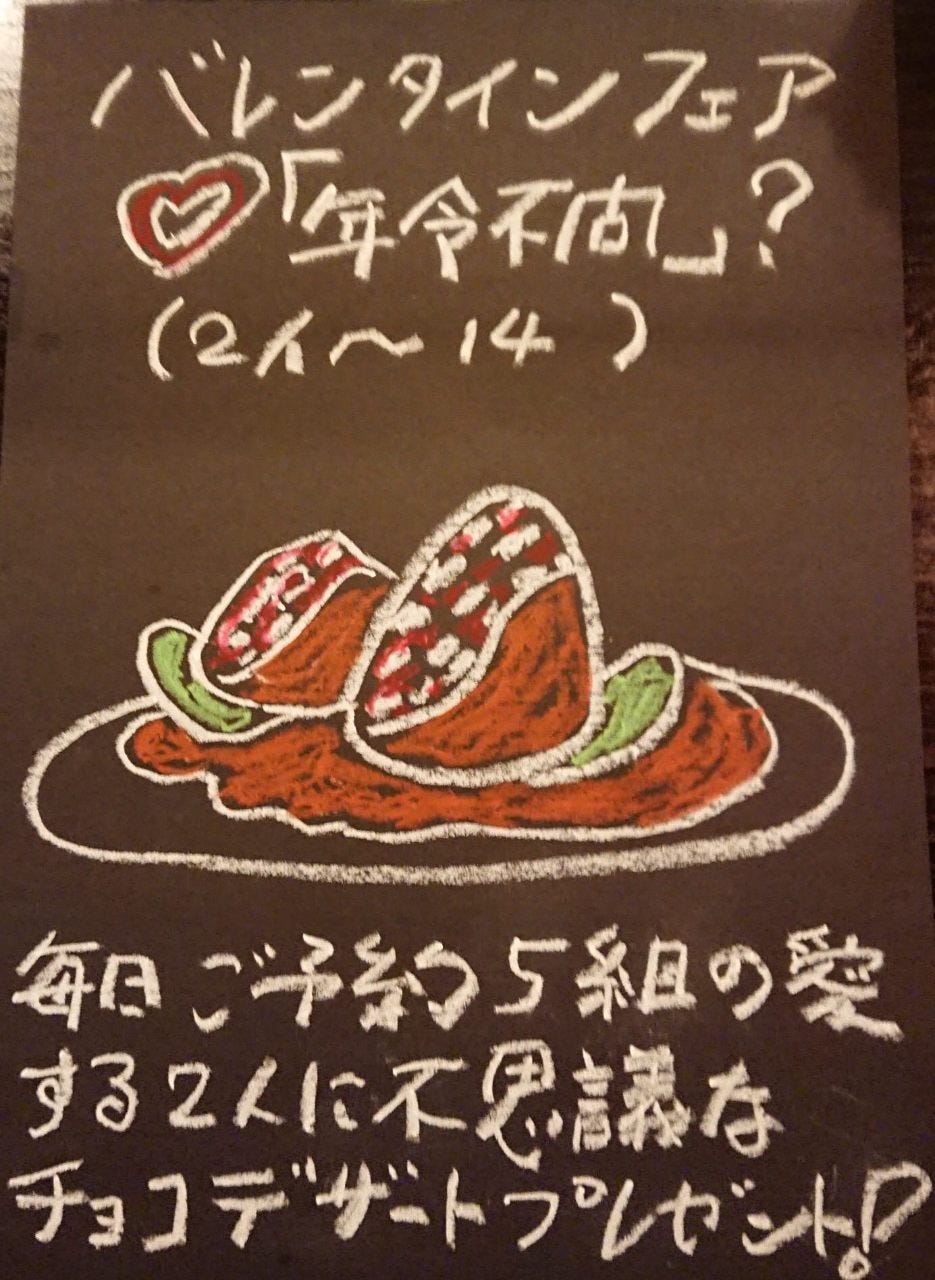 バレンタインフェア
「年令不问」?
(2/1〜14)
毎日ご予約5組の愛
する2人に不思議な
チョコデザートプレゼント!?